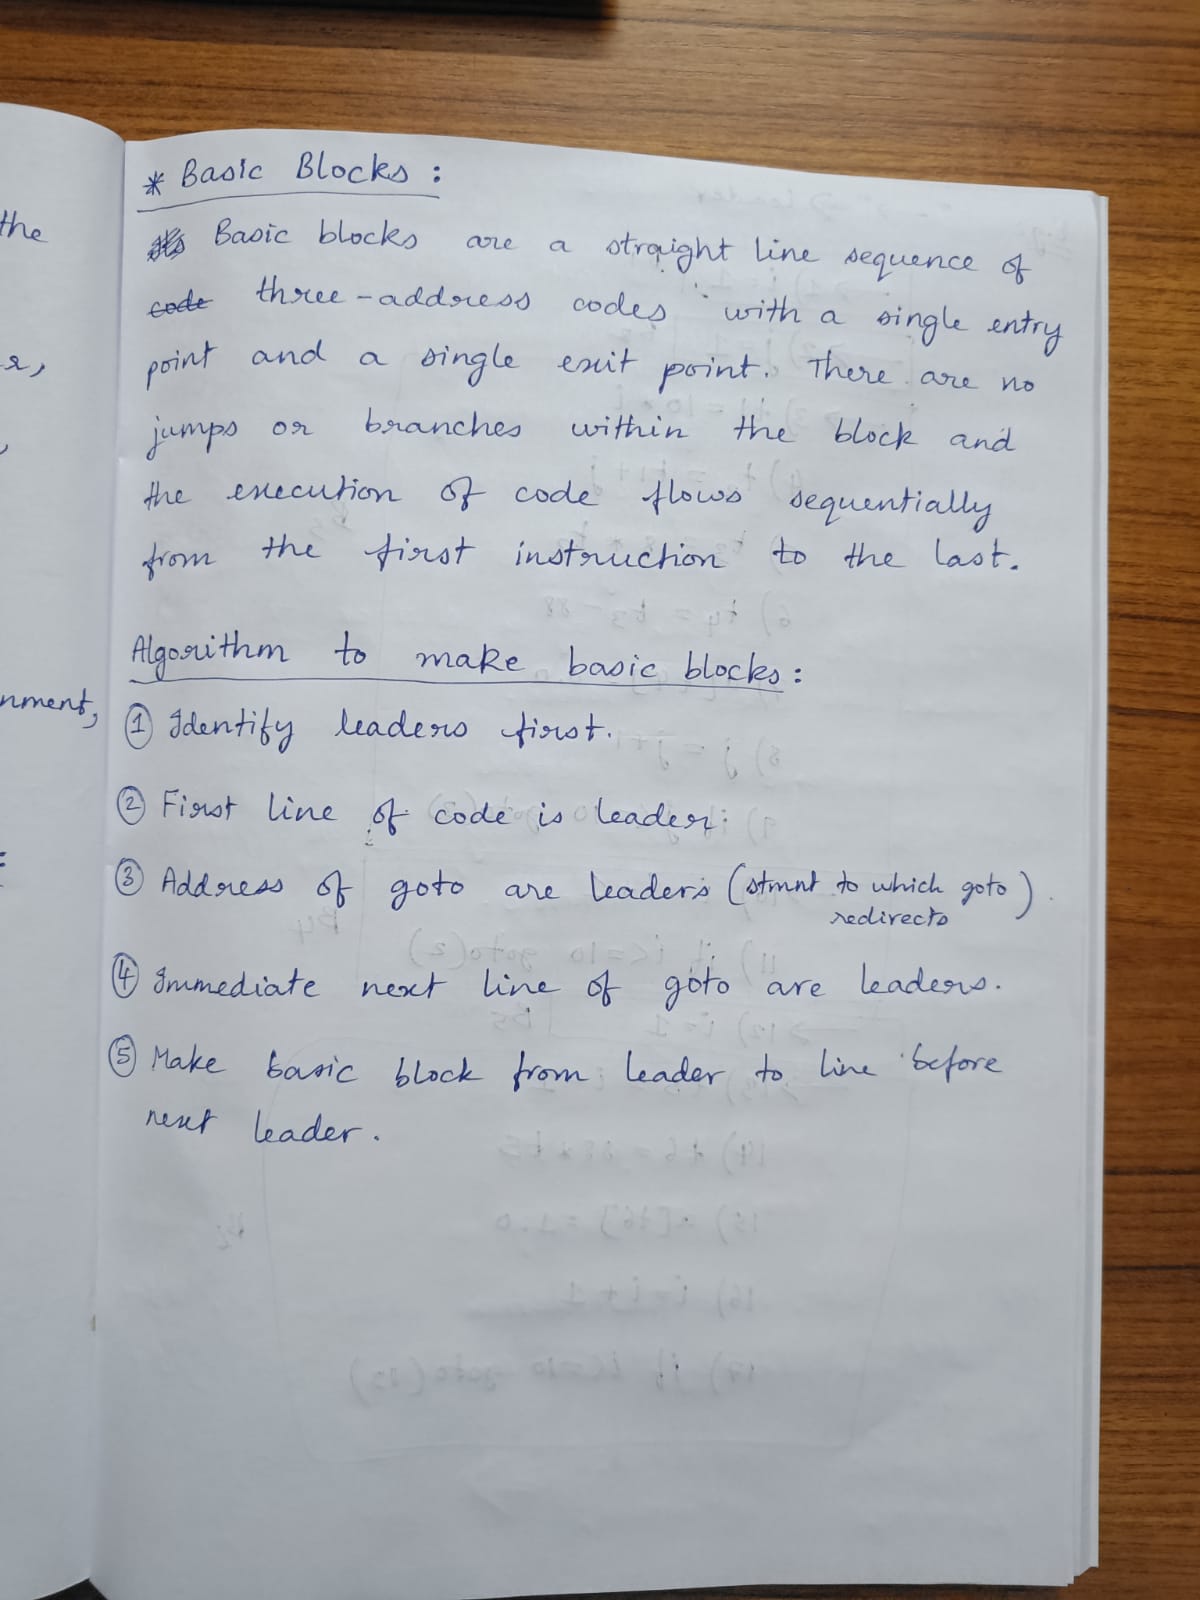 * Basic Blocks :
Basic blocks are a straight line sequence of
code three-address codes with a single entry
point and a single exit point. There are no
jumps or branches within the block and
the execution of code flows sequentially
from the first instruction to the last.
Algorithm to make basic blocks :
① Identify leaders first.
② First line of code is leader.
③ Address of goto are leaders (stmnt to which goto
redirects)
④ Immediate next line of goto are leaders.
⑤ Make basic block from leader to line before
next leader.
the
nment,